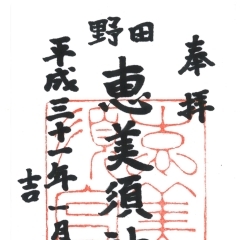 奉拝
野田
恵美須
平成三十一年一月
吉